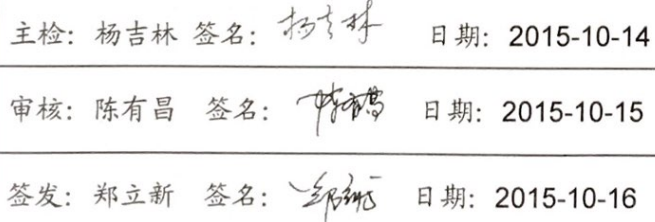 主检: 杨吉林 签名: 杨吉林 日期: 2015-10-14
审核: 陈有昌 签名: 陈有昌 日期: 2015-10-15
签发: 郑立新 签名: 郑立新 日期: 2015-10-16